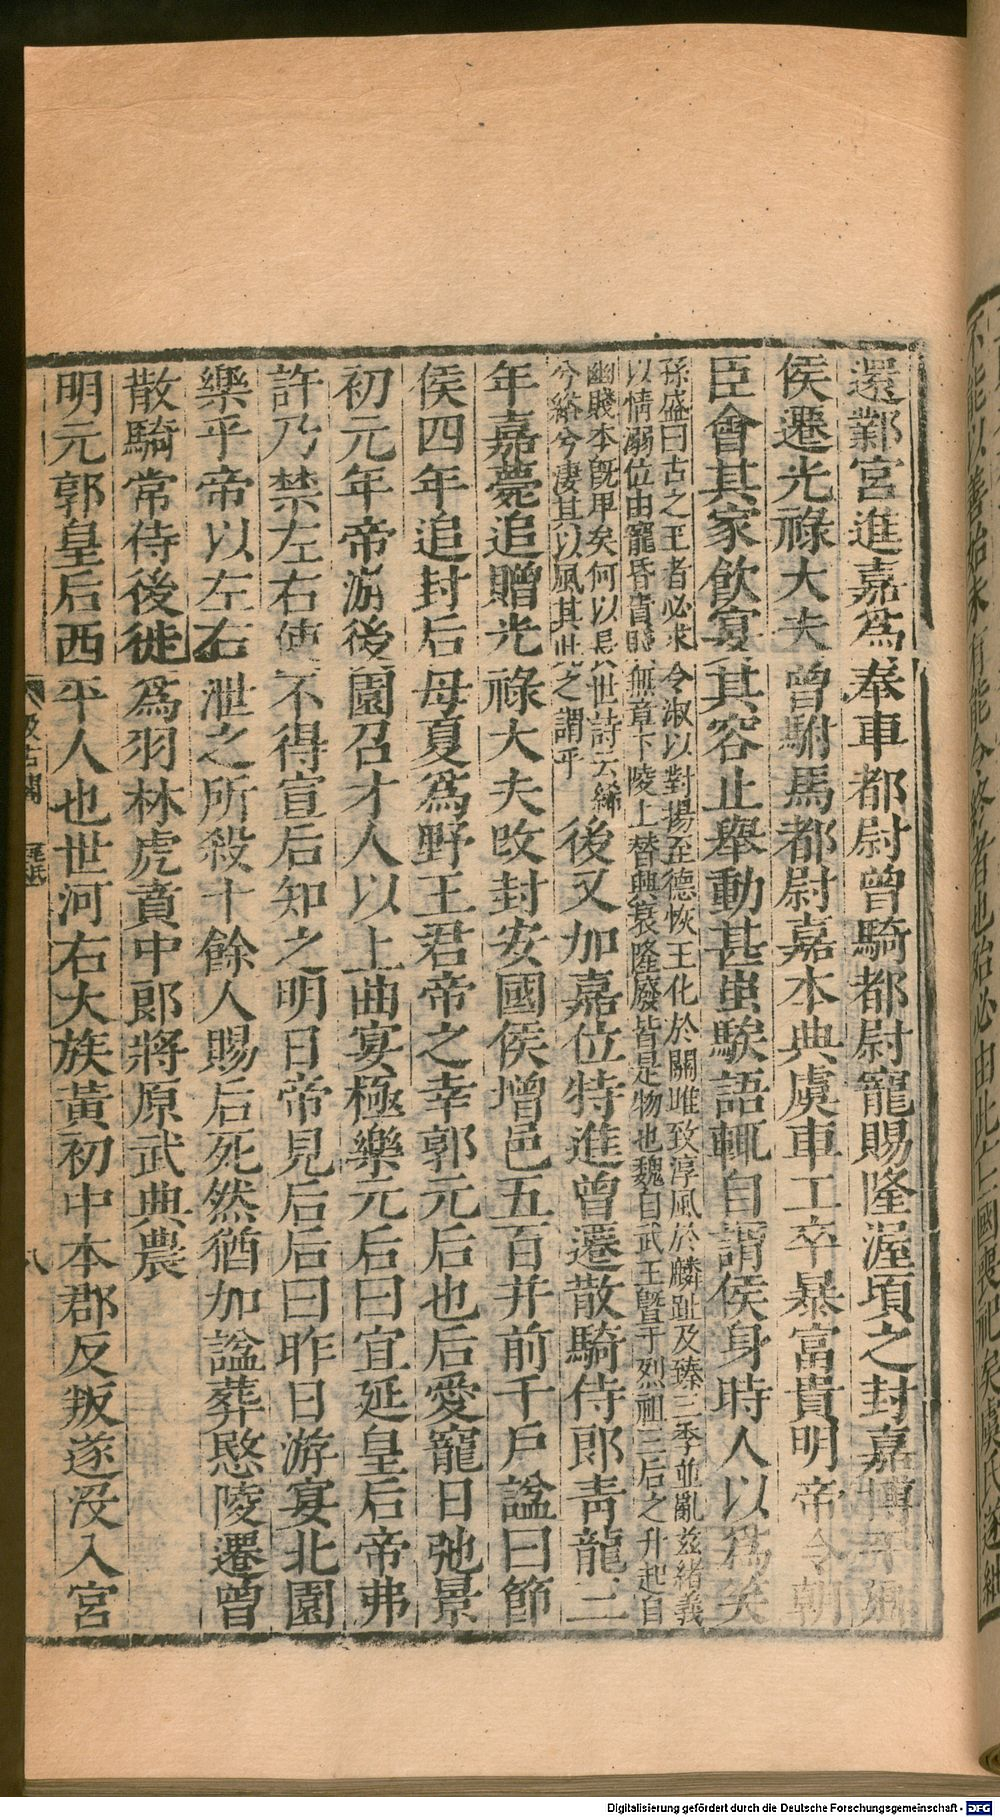 還鄴宮進嘉爲奉車都尉曾騎都尉寵賜隆渥頃之封嘉博平鄉
侯遷光祿大夫曾駙馬都尉嘉本典虞車工卒暴富貴明帝令朝
臣會其家飲宴其容止舉動甚蚩騃語輒自謂侯身時人以爲笑
孫盛曰古之王者必求令淑以對揚至德恢王化於關雎致淳風於麟趾及臻三季並亂兹緒義
以情溺位由寵昏貴賤無章下陵上替興衰隆廢皆是物也魏自武王曁于烈祖三后之升起自
幽賤本旣卑矣何以長世詩云絺
兮綌兮淒其以風其此之謂乎
後又加嘉位特進曾遷散騎侍郎靑龍三
年嘉薨追贈光祿大夫改封安國侯增邑五百并前千戶諡曰節
侯四年追封后母夏爲野王君帝之幸郭元后也后愛寵日弛景
初元年帝游後園召才人以上曲宴極樂元后曰宜延皇后帝弗
許乃禁左右使不得宣后知之明日帝見后后曰昨日游宴北園
樂乎帝以左右泄之所殺十餘人賜后死然猶加諡葬愍陵遷曾
散騎常侍後徙爲羽林虎賁中郎將原武典農
明元郭皇后西平人也世河右大族黃初中本郡反叛遂没入宮
汲古閣
八
不能以善始未有能令終者也始必由此亡國喪祀矣虞氏遂絀
Digitalisierung gefördert durch die Deutsche Forschungsgemeinschaft - DFG